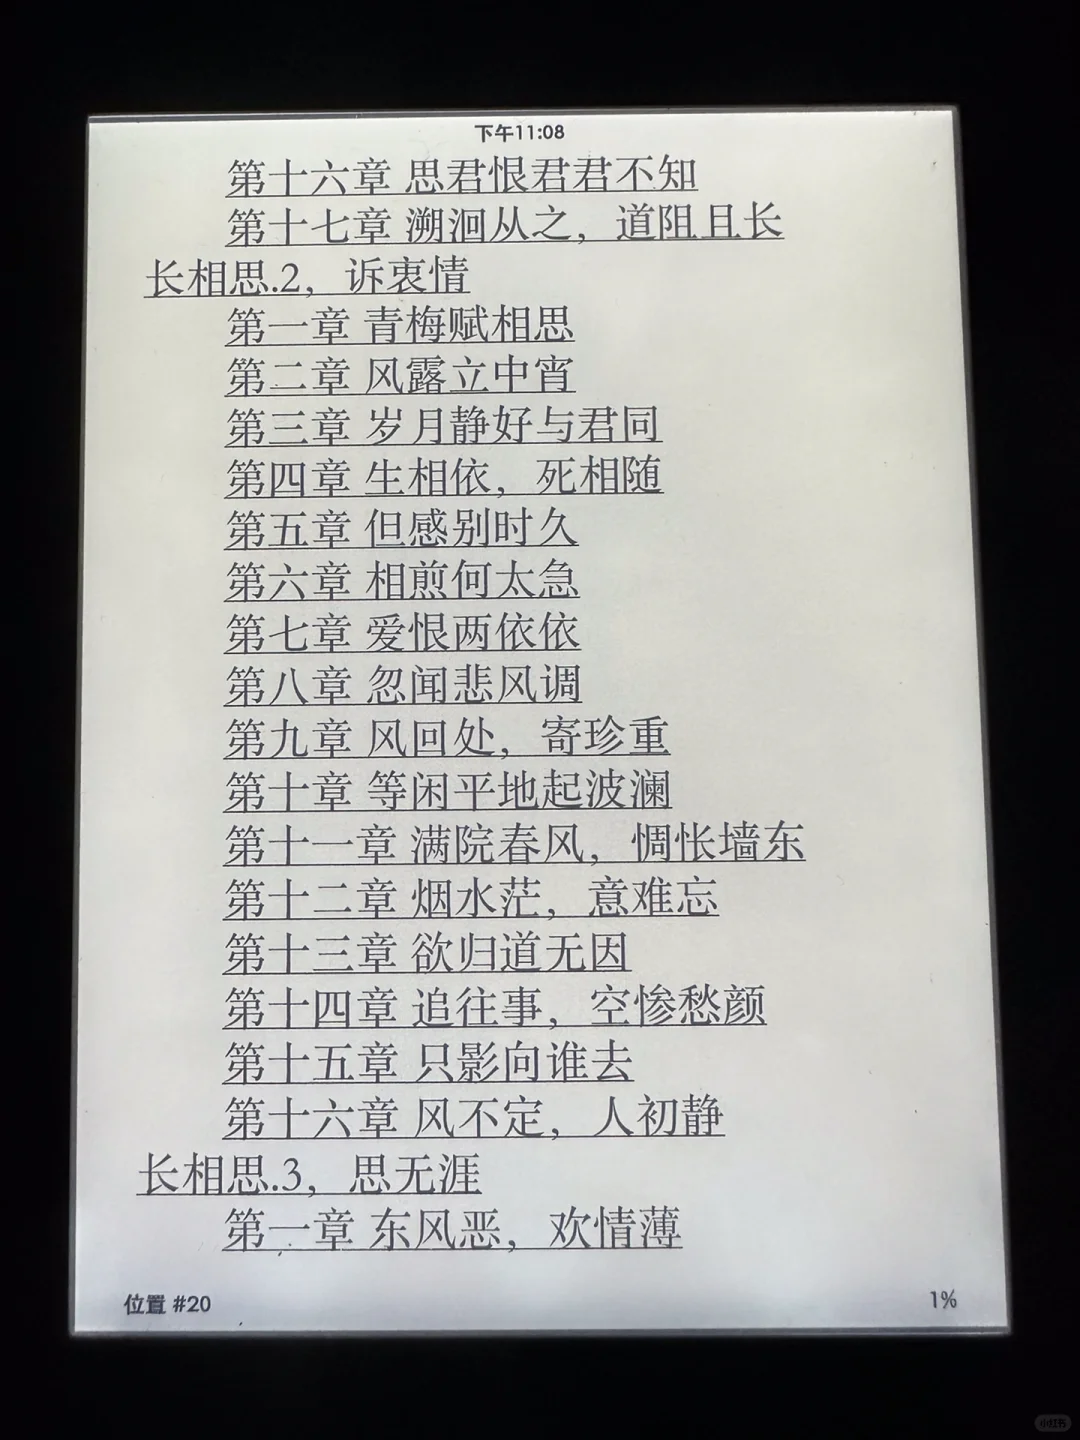 下午11:08
第十六章 思君恨君君不知
第十七章 溯洄从之，道阻且长
长相思.2，诉衷情
第一章 青梅赋相思
第二章 风露立中宵
第三章 岁月静好与君同
第四章 生相依，死相随
第五章 但感别时久
第六章 相煎何太急
第七章 爱恨两依依
第八章 忽闻悲风调
第九章 风回处，寄珍重
第十章 等闲平地起波澜
第十一章 满院春风，惆怅墙东
第十二章 烟水茫，意难忘
第十三章 欲归道无因
第十四章 追往事，空惨愁颜
第十五章 只影向谁去
第十六章 风不定，人初静
长相思.3，思无涯
第一章 东风恶，欢情薄
位置 #20 1%
小红书